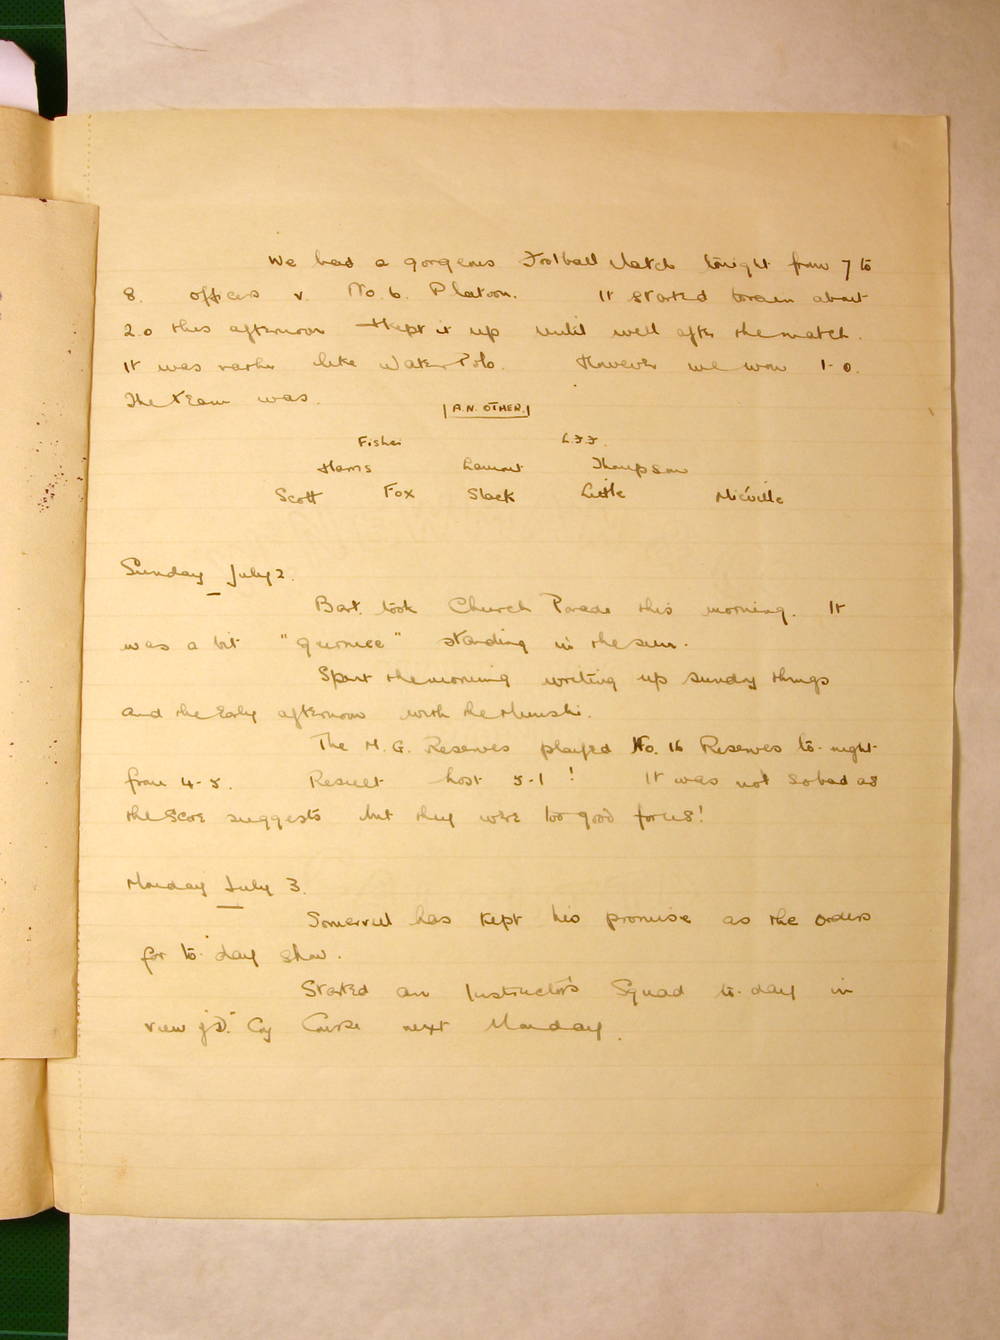 We had a gorgeous Football Match tonight from 7 to
8. Officers v. No. 6. Platoon. It started to rain about
2.0 this afternoon & kept it up until well after the match.
It was rather like Water Polo. However we won 1-0.
The Team was.
A.N. OTHER.
Fisher L.F.F.
Harris Lamont Thompson
Scott Fox Slack Little Miéville
Sunday July 2.
Bart. took Church Parade this morning. It
was a bit "" standing in the sun.
Spent the morning writing up sundry things
and the early afternoon with the Munshi.
The M.G. Reserves played No. 16 Reserves to-night
from 4-5. Result lost 5-1! It was not so bad as
the score suggests but they were too good for us!
Monday July 3.
Somervell has kept his promise as the orders
for to-day show.
Started an Instructors Squad to-day in
view of "D" Coy Course next Monday.